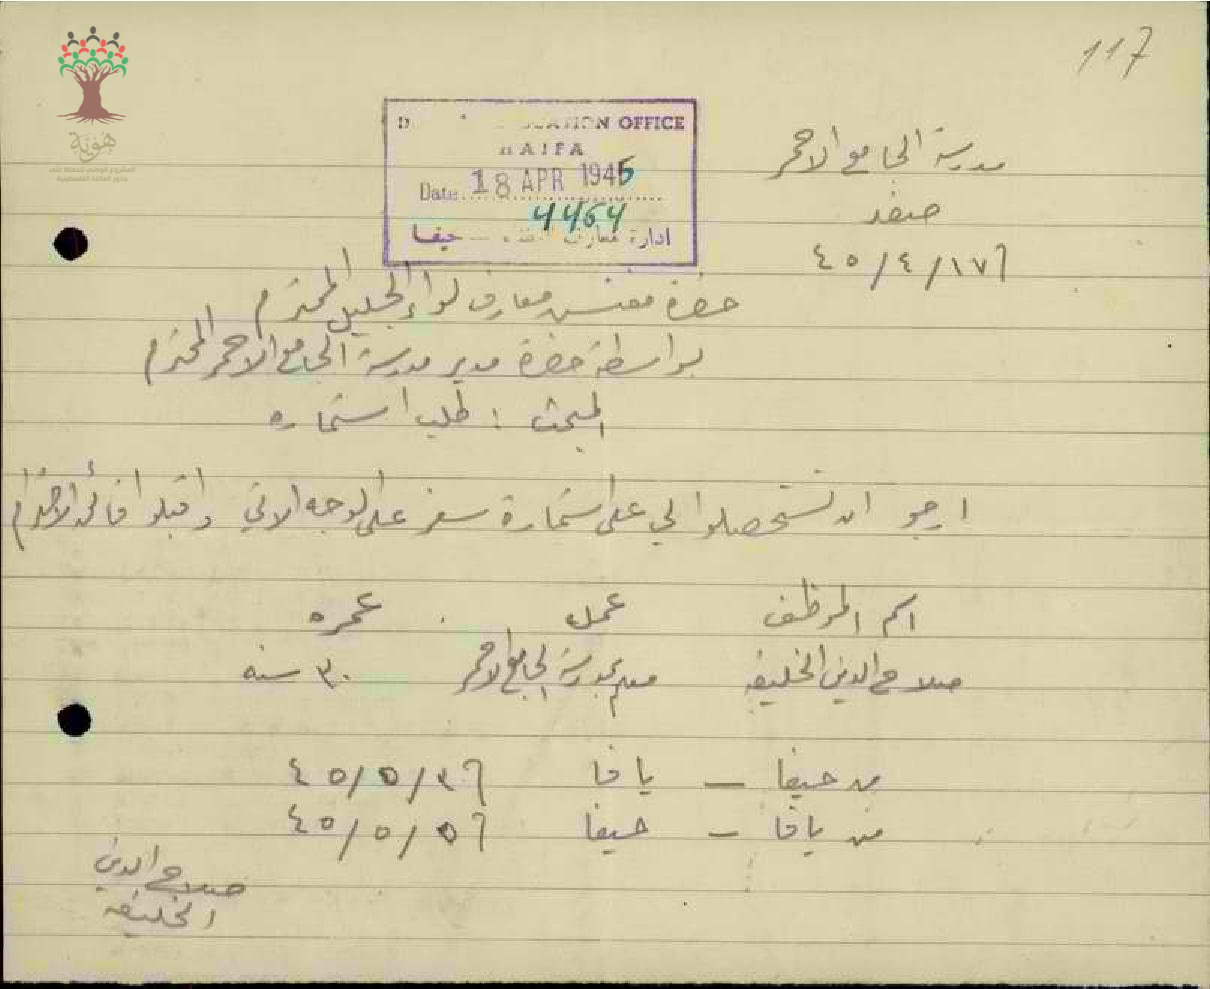 117
هوية
المشروع الوطني للحفاظ على
جذور العائلة الفلسطينية
EDUCATION OFFICE
HAIFA
Date 18 APR 1945
4464
ادارة معارف حيفا
مدرسة الجامع الاحمر
صفد
١٧/٤/٤٥
حضرة مفتش معارف لواء الجليل المحترم
بواسطة حضرة مدير مدرسة الجامع الاحمر المحترم
المبحث : طلب استماره
ارجو ان تستحصلوا لي على استمارة سفر على الوجه الاتي واقبلوا فائق الاحترام
اسم الموظف عمله عمره
صلاح الدين الخليفه معلم بمدرسة الجامع الاحمر ٣٠ سنه
من حيفا – يافا /٥/٤٥
من يافا – حيفا /٥/٤٥
صلاح الدين
الخليفه